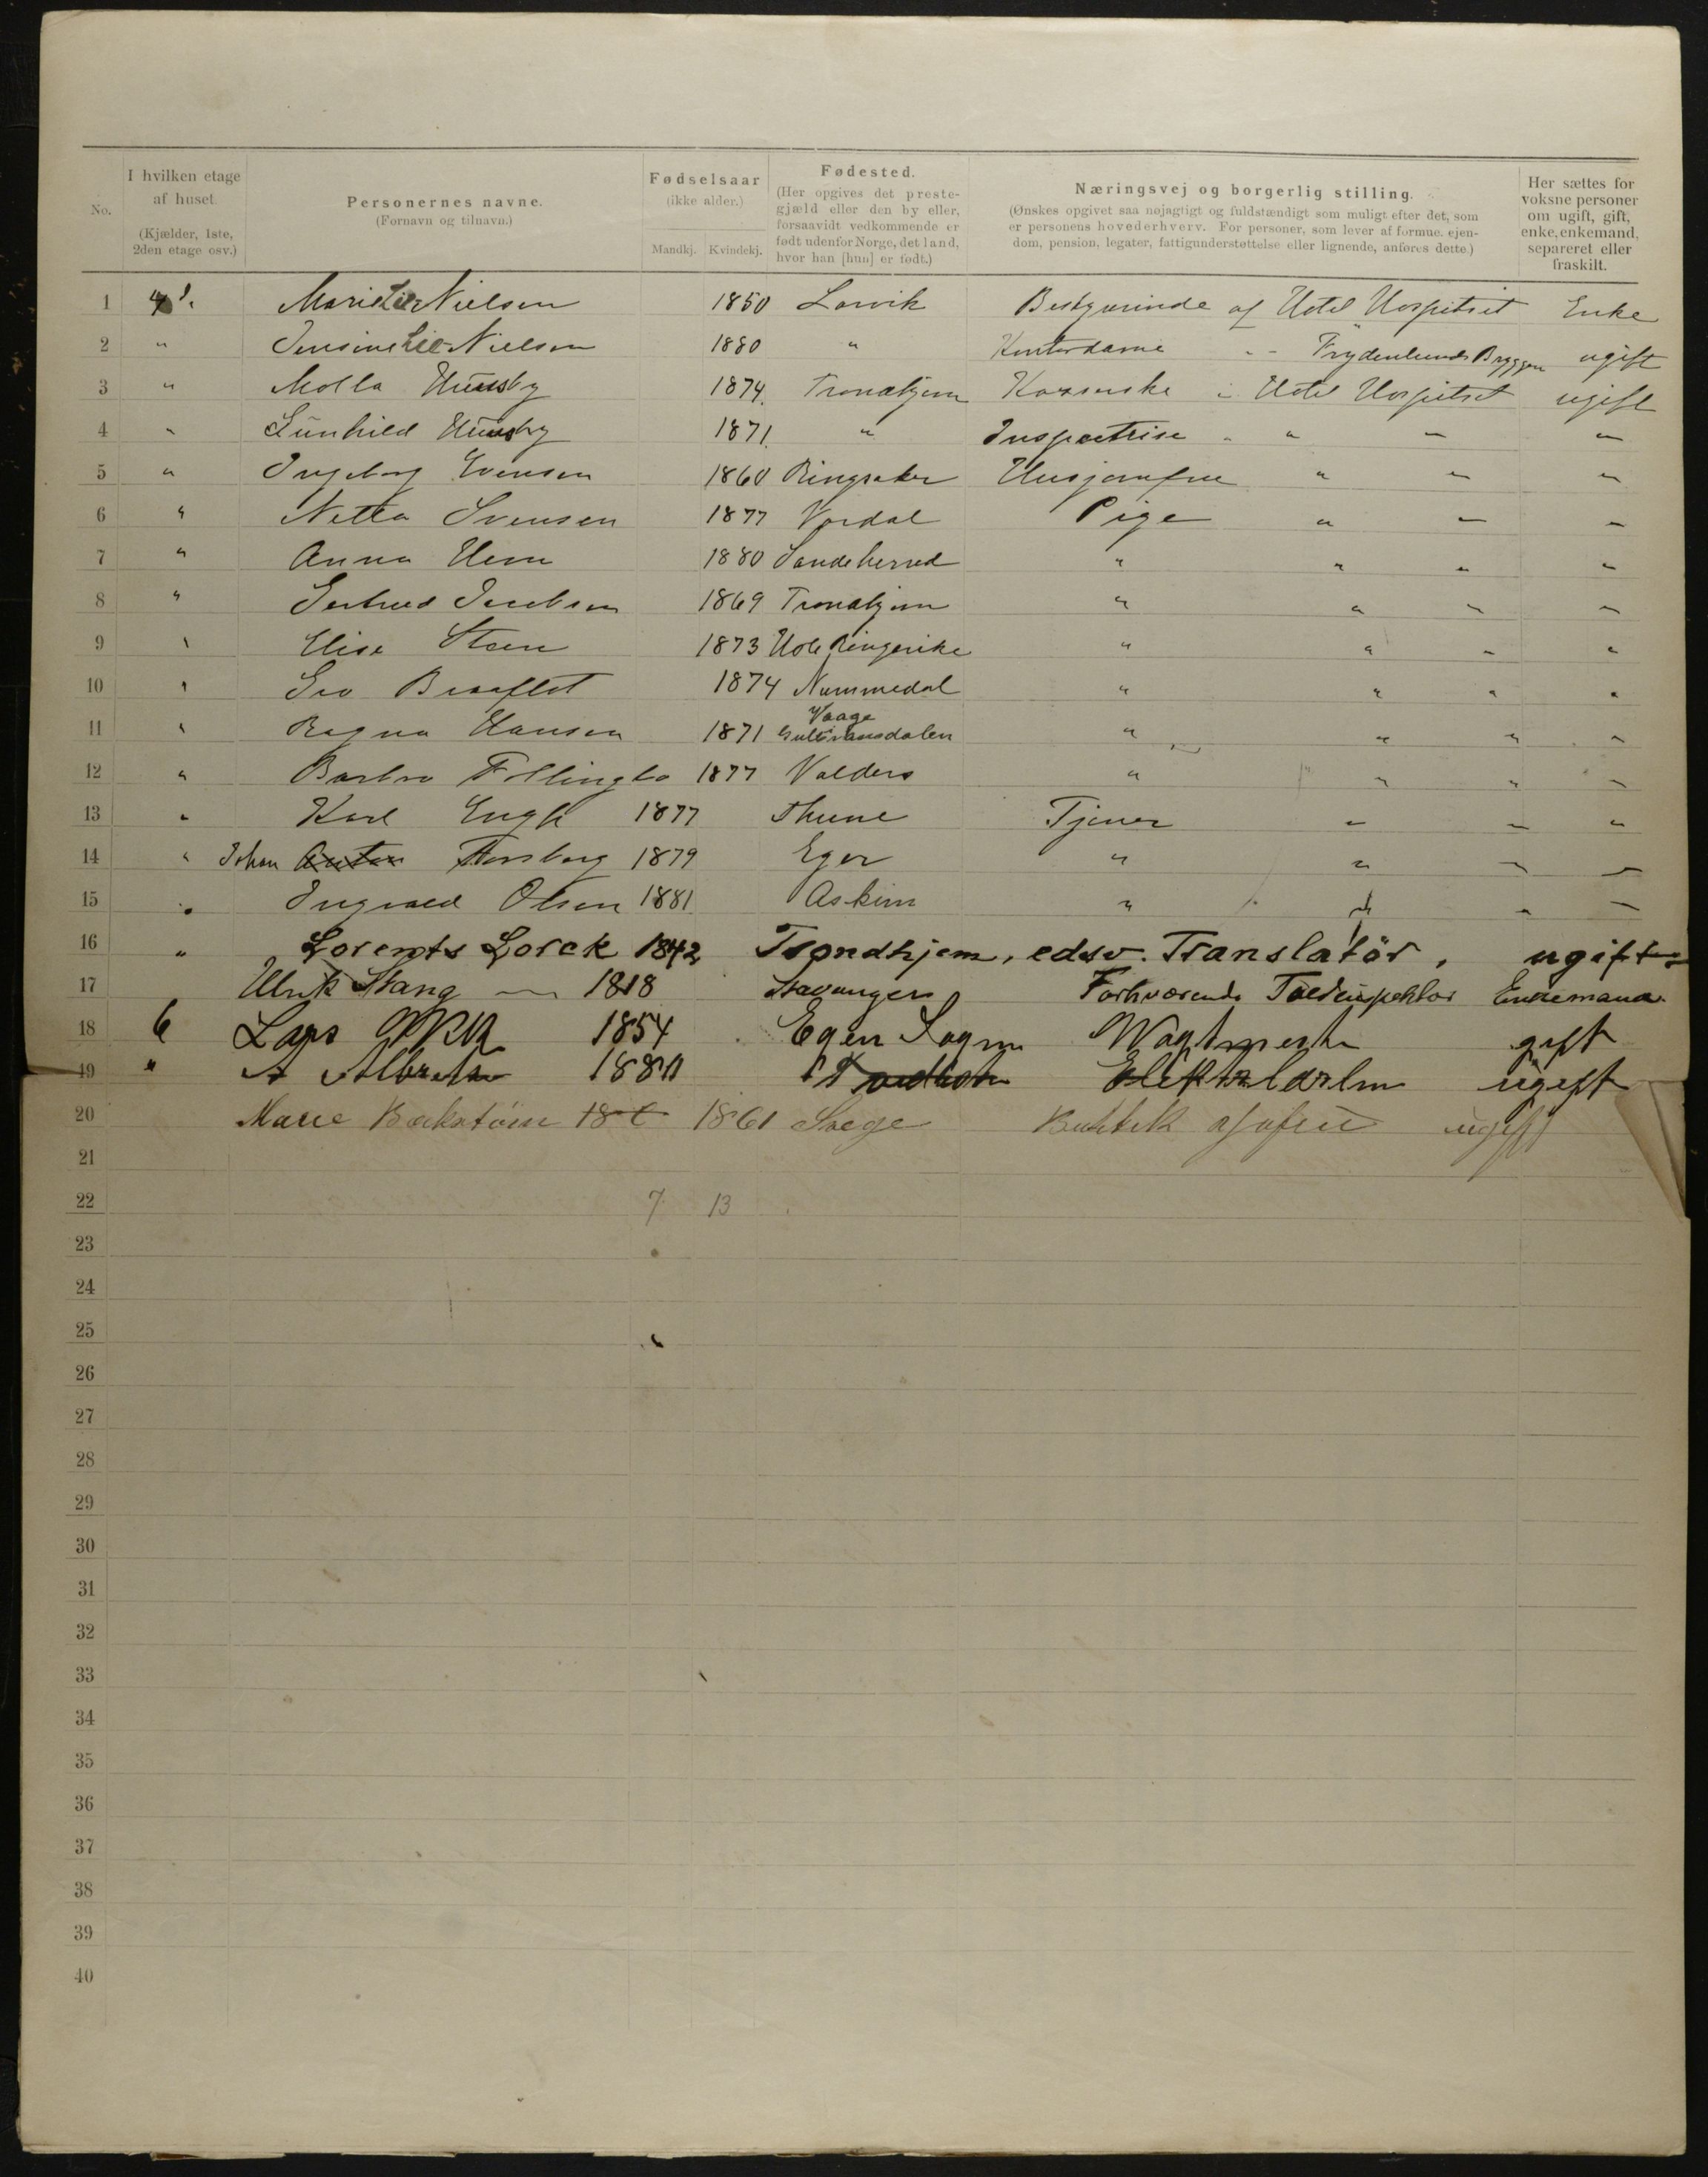 No.
I hvilken etage af huset.
(Kjælder, 1ste, 2den etage osv.)
Personernes navne.
(Fornavn og tilnavn.)
Fødselsaar
(ikke alder.)
Mandkj. Kvindekj.
Fødested.
(Her opgives det preste-
gjæld eller den by eller,
forsaavidt vedkommende er
født udenfor Norge, det land,
hvor han [hun] er født.)
Næringsvej og borgerlig stilling.
(Ønskes opgivet saa nøjagtigt og fuldstændigt som muligt efter det, som
er personens hovederhverv. For personer, som lever af formue, ejen-
dom, pension, legater, fattigunderstøttelse eller lignende, anføres dette.)
Her sættes for
voksne personer
om ugift, gift,
enke, enkemand,
separeret eller
fraskilt.
1 Marie Lie Nielsen 1850 Larvik Bestyrerinde af Hotel Hospitset Enke
2 " Jensine Lie Nielsen 1880 " Kontordame " Frydenlunds Bryggeri ugift
3 " Molla Huusby 1874 Trondhjem Kasserske i Hotel Hospitset ugift
4 " Gunhild Huusby 1871 " Inspectrise " " " "
5 " Ingeborg Evensen 1860 Ringsaker Husjomfru " " "
6 " Netta Svensen 1877 Pige " " "
7 " Anna Hem 1880 Sandeherred " " " "
8 " Gertrud Jacobsen 1869 Trondhjem " " " "
9 " Elise Steen 1873 Hole Ringerike " " " "
10 " Gro 1874 Nummedal " " " "
11 " Ragna Hansen 1871 Vaage Gulbransdalen " " " "
12 " Barbro 1877 Valders " " " "
13 " Karl Engh 1877 Thune Tjener " " "
14 " Johan Anton Forsberg 1879 Eger " " " "
15 " Ingvald Olsen 1881 Askim " " " "
16 " Lorents Lorck 1842 Trondhjem, edsv. Translatör, ugift
17 Ulrik Stang 1818 Stavanger Forhværende Toldinspektør Enkemand
18 6 Lars 1854 Sogn gift
19 " A 1880 ugift
20 Marie 18 1861 ugift
7 13
21
22
23
24
25
26
27
28
29
30
31
32
33
34
35
36
37
38
39
40